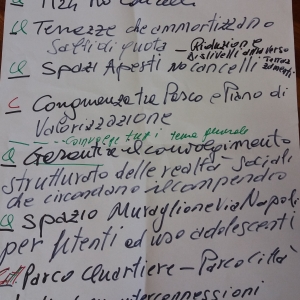 H24 No Cancelli
Q Terrazze che ammortizzano
Salti di quota – Riduzione
Dislivelli attraverso
Terrazzamenti
Q Spazi Aperti No cancelli
C Congruenza tra Parco e Piano di
Valorizzazione
tema generale
Q Garantire il coinvolgimento
strutturato delle realtà sociali
che circondano il comprendio
Q Spazio Muraglione Via Napoli
per utenti ad uso adolescenti
Parco Quartiere – Parco Città
interconnessioni